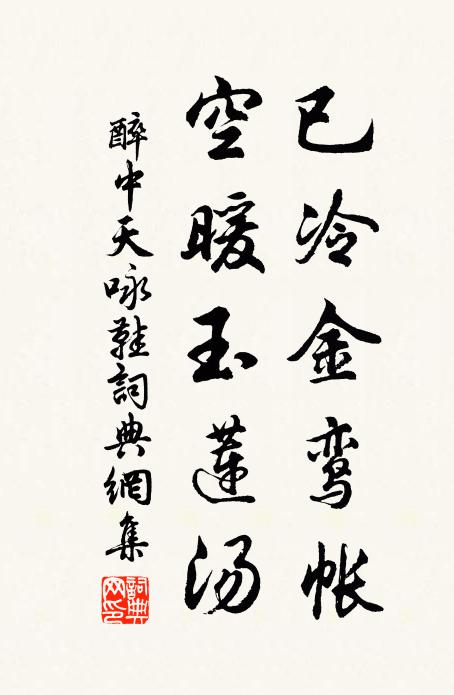 已冷金鸾帐
空暖玉莲汤
醉中天咏鞋詞典網集
詞典
网印